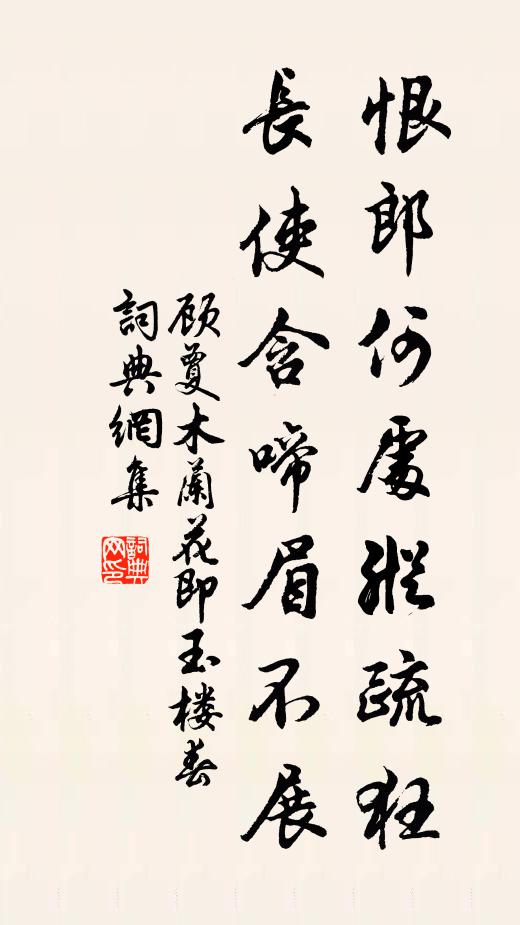 恨郎何處縱疏狂
長使含啼眉不展
顾夐木蘭花即玉楼春
詞典網集
詞典网印